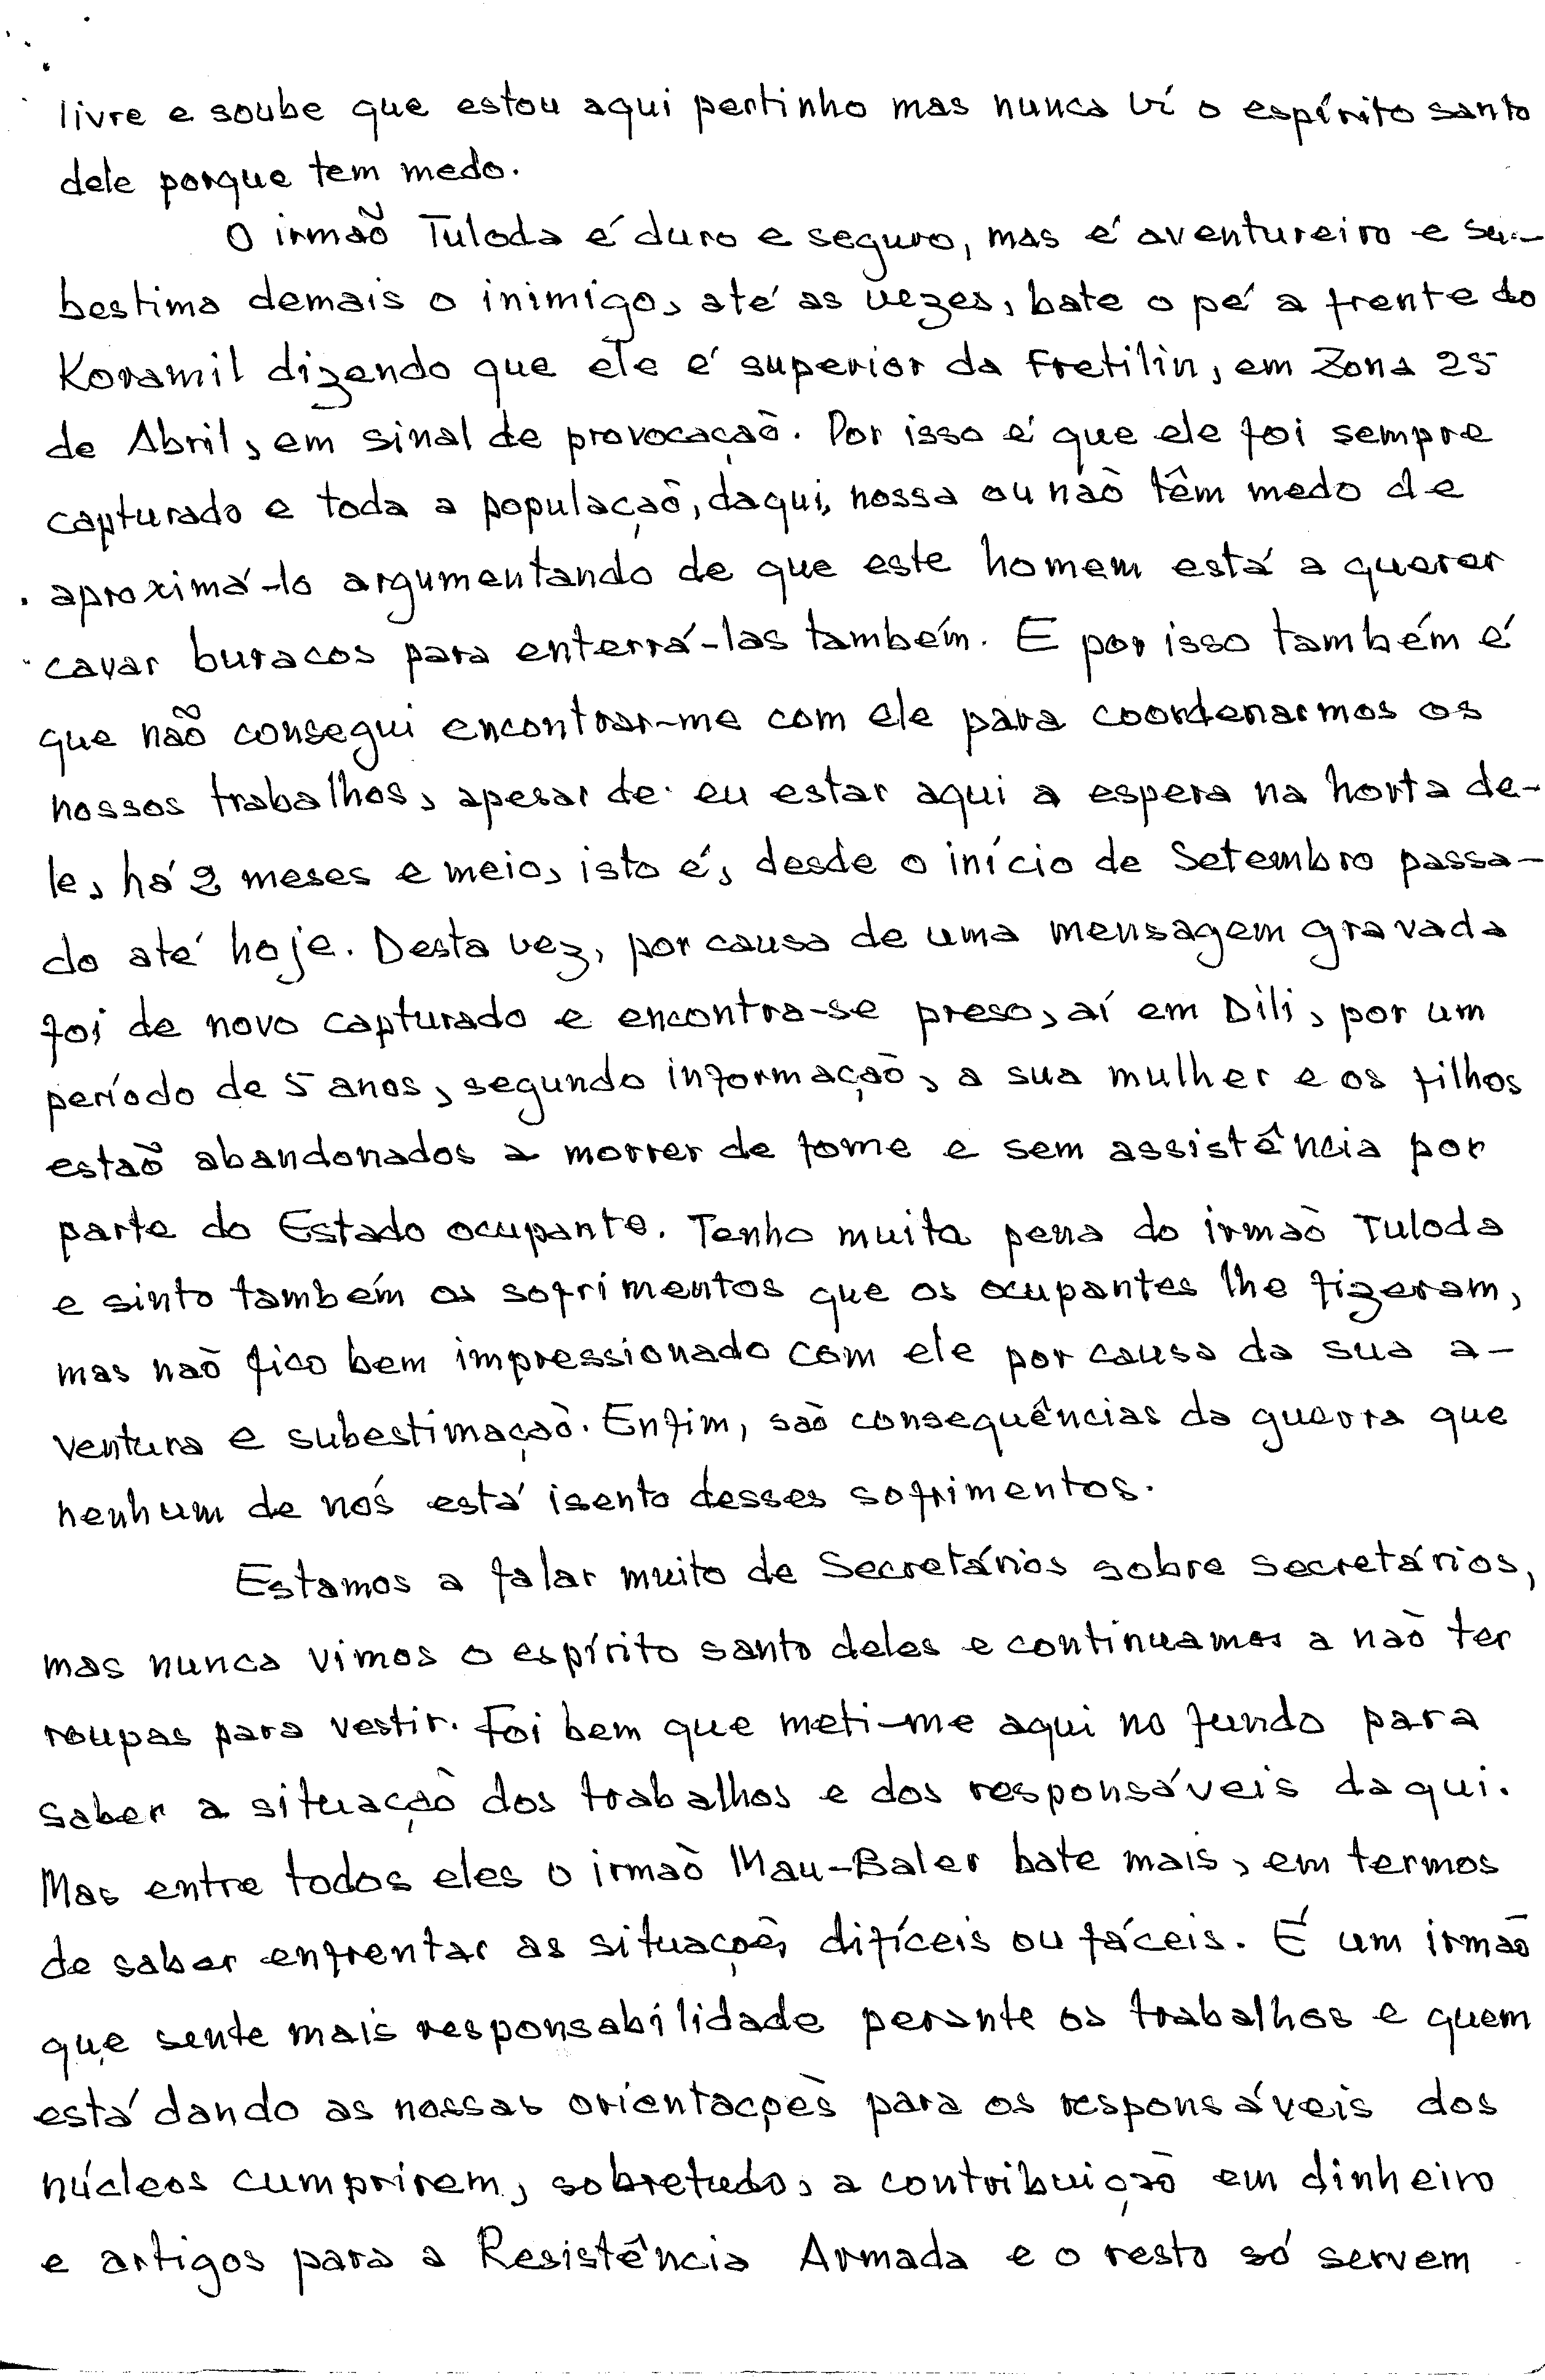 livre e soube que estou aqui pertinho mas nunca ví o espírito santo
dele porque tem medo.
O irmão Tuloda é duro e seguro, mas é aventureiro e su-
bestima demais o inimigo, até as vezes, bate o pé a frente do
Koramil dizendo que ele é superior da Fretilin, em Zona 25
de Abril, em sinal de provocação. Por isso é que ele foi sempre
capturado e toda a população, daqui, nossa ou não têm medo de
aproximá-lo argumentando de que este homem está a querer
cavar buracos para enterrá-las também. E por isso também é
que não consegui encontrar-me com ele para coordenarmos os
nossos trabalhos, apesar de eu estar aqui a espera na horta de-
le, há 2 meses e meio, isto é, desde o início de Setembro passa-
do até hoje. Desta vez, por causa de uma mensagem gravada
foi de novo capturado e encontra-se preso, aí em Dili, por um
período de 5 anos, segundo informação, a sua mulher e os filhos
estão abandonados a morrer de fome e sem assistência por
parte do Estado ocupante. Tenho muita pena do irmão Tuloda
e sinto também os sofrimentos que os ocupantes lhe fizeram,
mas não fico bem impressionado com ele por causa da sua a-
ventura e subestimação. Enfim, são consequências da guerra que
nenhum de nós está isento desses sofrimentos.
Estamos a falar muito de Secretários sobre secretários,
mas nunca vimos o espírito santo deles e continuamos a não ter
roupas para vestir. Foi bem que meti-me aqui no fundo para
saber a situação dos trabalhos e dos responsáveis daqui.
Mas entre todos eles o irmão Mau-Baler bate mais, em termos
de saber enfrentar as situações difíceis ou fáceis. É um irmão
que sente mais responsabilidade perante os trabalhos e quem
está dando as nossas orientações para os responsáveis dos
núcleos cumprirem, sobretudo, a contribuição em dinheiro
e artigos para a Resistência Armada e o resto só servem